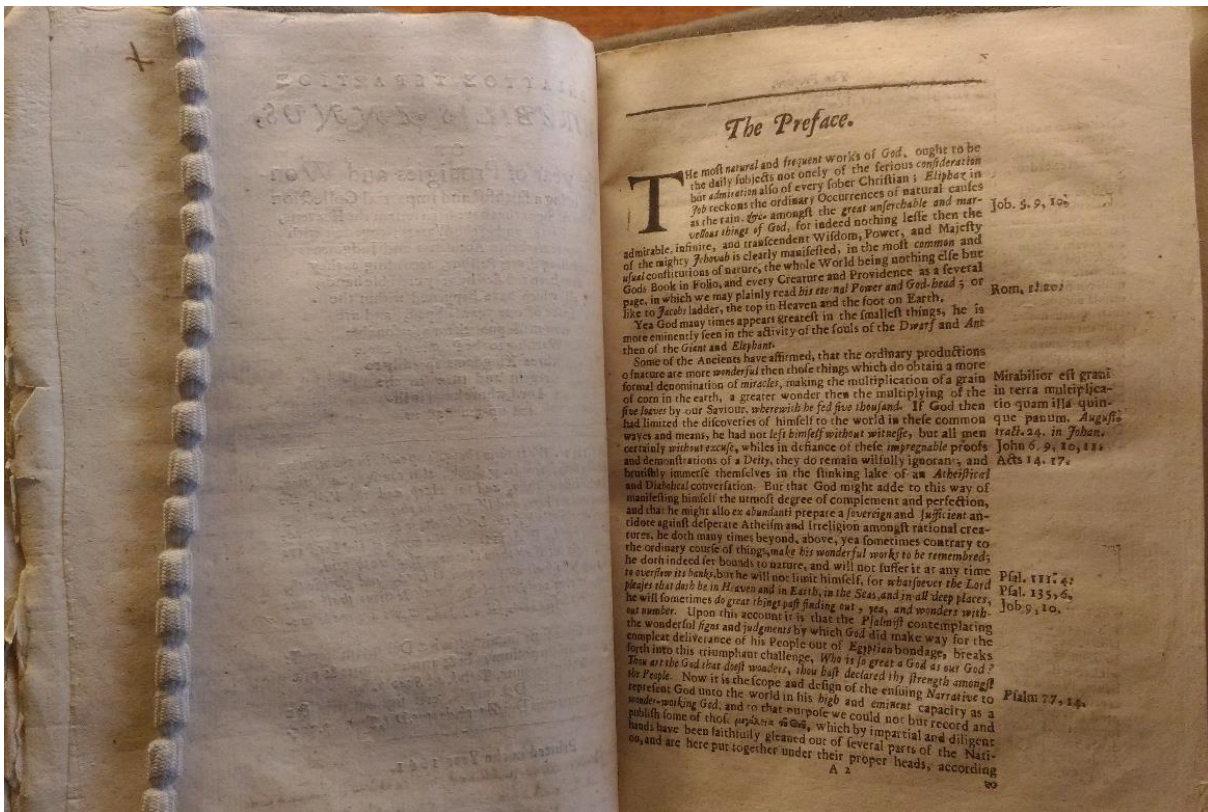 The Preface.
THe most natural and frequent works of God, ought to be
the daily subjects not onely of the serious consideration
but admiration also of every sober Christian; Eliphaz in
Job reckons the ordinary Occurrences of natural causes
as the rain, &c. amongst the great unserchable and mar-
vellous things of God, for indeed nothing lesse then the
admirable, infinite, and transcendent Wisdom, Power, and Majesty
of the mighty Jehovah is clearly manifested, in the most common and
usual constitutions of nature, the whole World being nothing else but
Gods Book in Folio, and every Creature and Providence as a several
page, in which we may plainly read his eternal Power and God-head; or
like to Jacobs ladder, the top in Heaven and the foot on Earth.
Yea God many times appears greatest in the smallest things, he is
more eminently seen in the activity of the souls of the Dwarf and Ant
then of the Giant and Elephant.
Some of the Ancients have affirmed, that the ordinary productions
of nature are more wonderful then those things which do obtain a more
formal denomination of miracles, making the multiplication of a grain
of corn in the earth, a greater wonder then the multiplying of the
five loaves by our Saviour, wherewith he fed five thousand. If God then
had limited the discoveries of himself to the world in these common
wayes and means, he had not left himself without witnesse, but all men
certainly without excuse, whiles in defiance of these impregnable proofs
and demonstrations of a Deity, they do remain wilfully ignorant, and
brutishly immerse themselves in the stinking lake of an Atheistical
and Diabolical conversation. But that God might adde to this way of
manifesting himself the utmost degree of complement and perfection,
and that he might also ex abundanti prepare a sovereign and sufficient an-
tidote against desperate Atheism and Irreligion amongst rational crea-
tures, he doth many times beyond, above, yea sometimes contrary to
the ordinary course of things, make his wonderful works to be remembred;
he doth indeed set bounds to nature, and will not suffer it at any time
to overflow its banks, but he will not limit himself, for whatsoever the Lord
pleases that doth he in Heaven and in Earth, in the Seas, and in all deep places,
he will sometimes do great things past finding out, yea, and wonders with-
out number. Upon this account it is that the Psalmist contemplating
the wonderful signs and judgments by which God did make way for the
compleat deliverance of his People out of Egyptian bondage, breaks
forth into this triumphant challenge, Who is so great a God as our God?
Thou art the God that doest wonders, thou hast declared thy strength amongst
the People. Now it is the scope and design of the ensuing Narrative to
represent God unto the world in his high and eminent capacity as a
wonder-working God, and to that purpose we could not but record and
publish some of those which by impartial and diligent
hands have been faithfully gleaned out of several parts of the Nati-
on, and are here put together under their proper heads, according
A 2
to
Job. 5. 9, 10.
Rom. 1. 20.
Mirabilior est grani
in terra multiplica-
tio quam illa quin-
que panum. August.
tract. 24. in Johan.
John 6. 9, 10, 11.
Acts 14. 17.
Psal. 111. 4.
Psal. 135, 6,
Job 9, 10.
Psalm 77, 14.